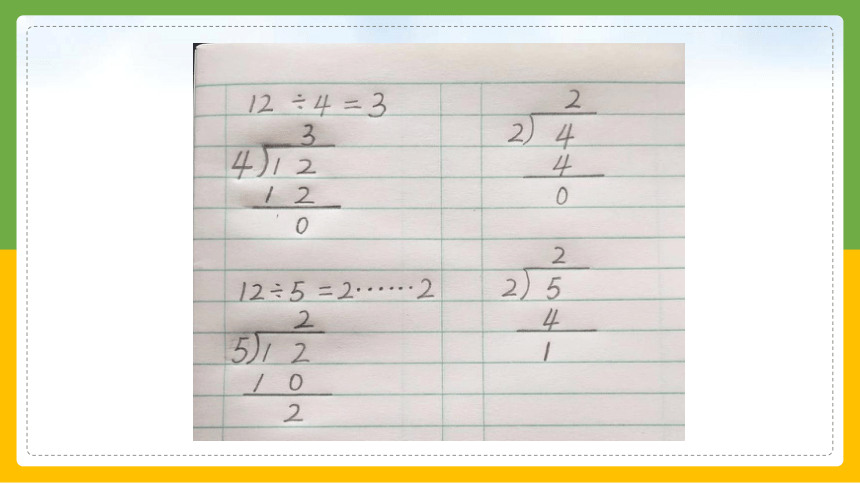 12 ÷ 4 = 3
3
4)12
12
0
12÷5 =2……2
2
5)12
10
2
2
2) 4
4
0
2
2) 5
4
1